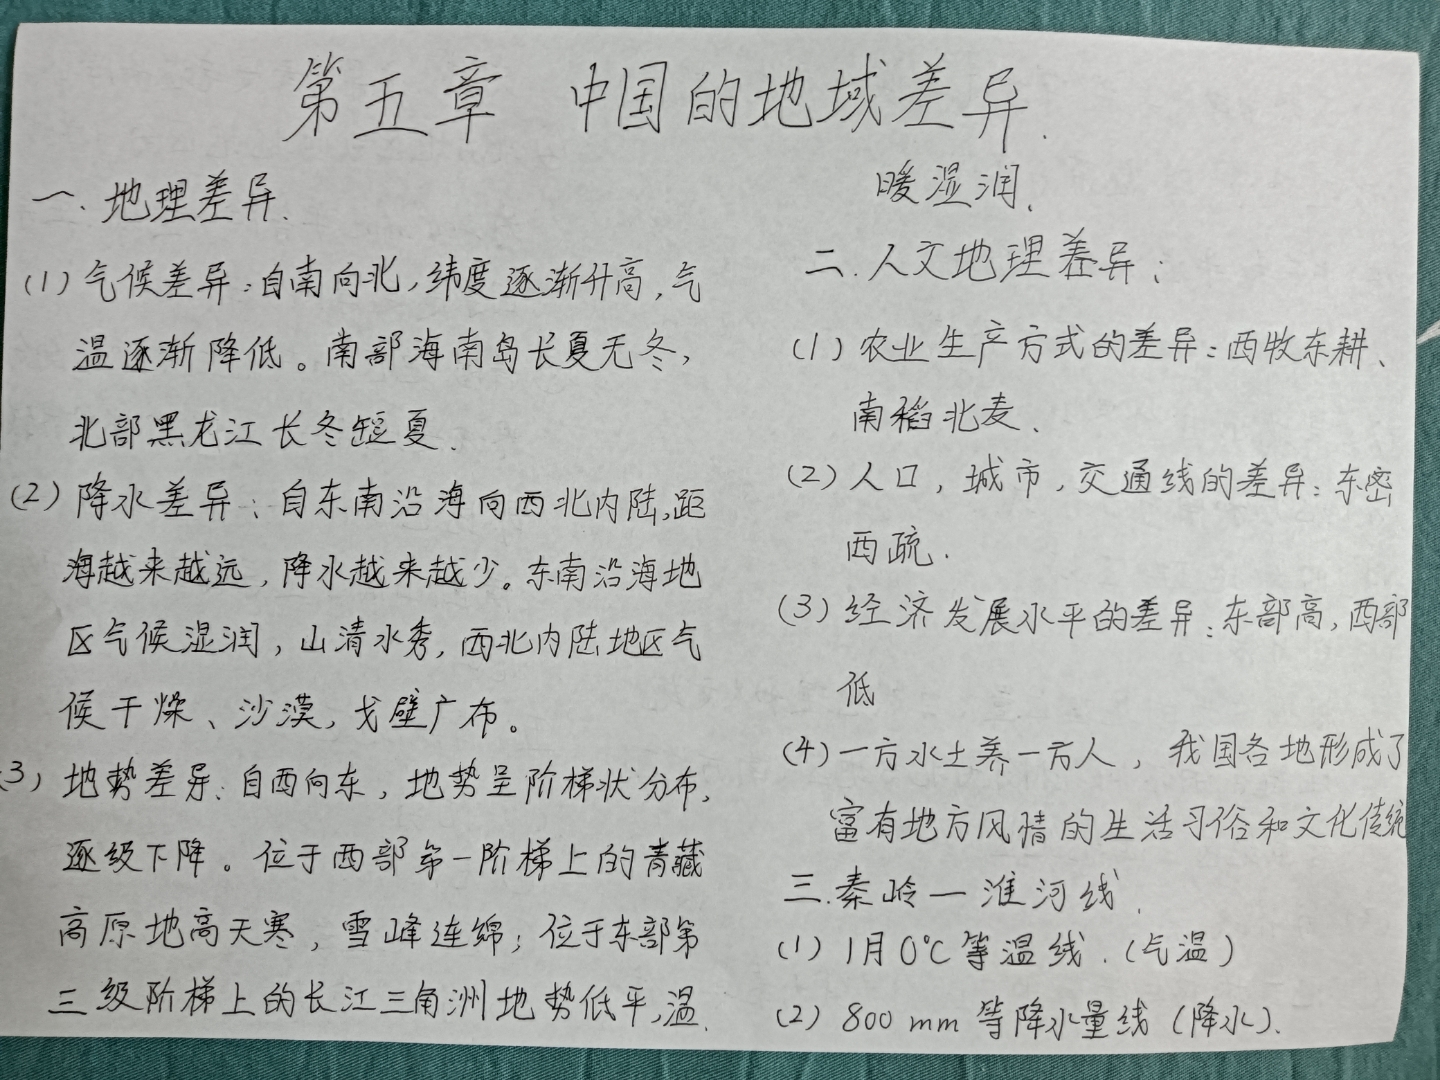 第五章 中国的地域差异.
一.地理差异.
(1)气候差异:自南向北,纬度逐渐升高,气
温逐渐降低。南部海南岛长夏无冬,
北部黑龙江长冬短夏.
(2)降水差异:自东南沿海向西北内陆,距
海越来越远,降水越来越少。东南沿海地
区气候湿润,山清水秀,西北内陆地区气
候干燥、沙漠,戈壁广布。
(3)地势差异:自西向东,地势呈阶梯状分布,
逐级下降。位于西部第一阶梯上的青藏
高原地高天寒,雪峰连绵;位于东部第
三级阶梯上的长江三角洲地势低平,温.
暖湿润.
二.人文地理差异:
(1)农业生产方式的差异:西牧东耕、
南稻北麦、
(2)人口,城市,交通线的差异:东密
西疏.
(3)经济发展水平的差异:东部高,西部
低
(4)一方水土养一方人,我国各地形成了
富有地方风情的生活习俗和文化传统
三.秦岭一淮河线.
(1)1月0℃等温线.(气温)
(2)800mm等降水量线(降水).